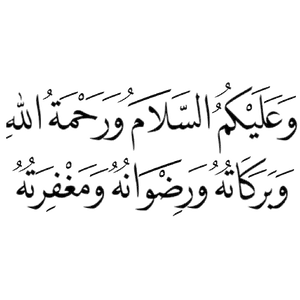 وَعَلَيْكُمُ السَّلَامُ وَرَحْمَةُ اللهِ
وَبَرَكَاتُهُ وَرِضْوَانُهُ وَمَغْفِرَتُهُ